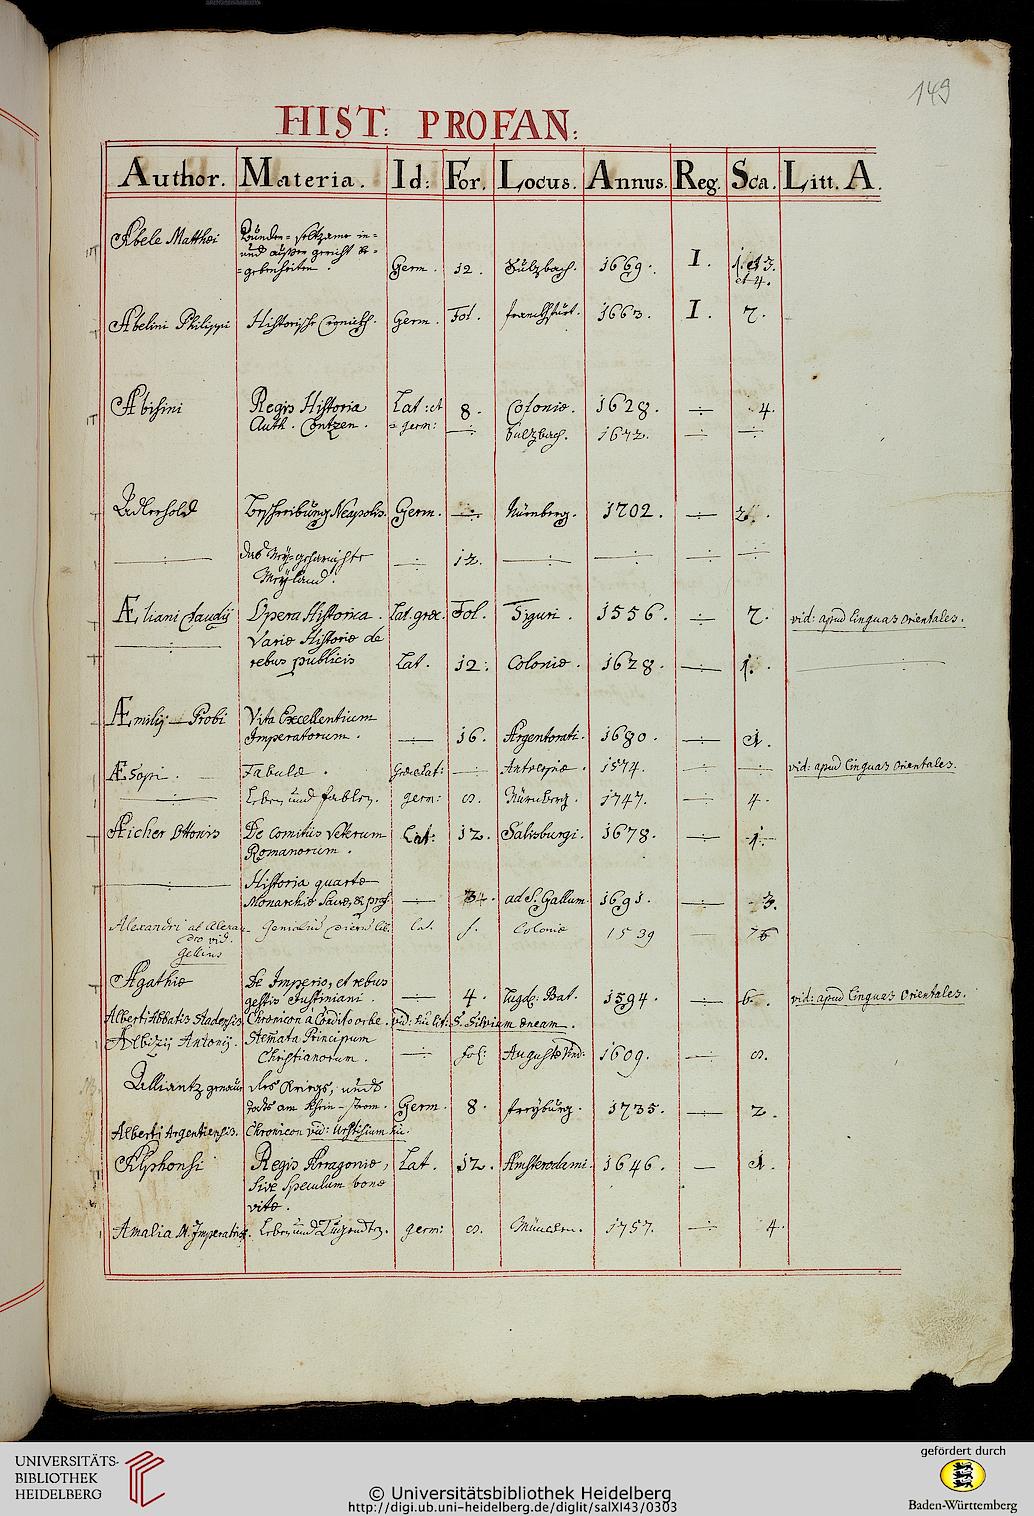 149
HIST: PROFAN:
Author. Materia. Id: For. Locus. Annus. Reg. Sca. Litt. A.
Abele Matthæi
und außer gericht be=
=gebenheiten. Germ. 12. Sulzbach. 1669. I. 1. et 3.
et 4.
Abelini Philippi Historische Cronickh. Germ. Fol. franckhfurt. 1663. I. 7.
Abisini Regis Historia Lat: et 8. Coloniæ. 1628. 4.
Auth. Contzen. = germ: Sulzbach. 1672.
Adlerhold Beschreibung Neapolis. Germ. Nürnberg. 1702.
das Ney=geharnischte 12.
Meyland.
Æliani Claudij Opera Historica. Lat. græc. Fol. Tiguri. 1556. 7. vid: apud linguas orientales.
Variæ Historiæ de
rebus publicis Lat. 12. Coloniæ. 1628. 1.
Æmilij Probi Vita Excellentium
Imperatorum. 16. Argentorati. 1680. 1.
Æsopi. Fabulæ. Græc Lat: 1574. vid: apud linguas orientales.
Leben und fablen. germ: 8. Nürnberg. 1747. 4.
Aicher Ottonis De Comitiis Veterum Lat: 12. Salisburgi. 1678. 1.
Romanorum.
Historia quartæ
Monarchiæ Sacræ, & prof ad S. Gallum. 1691. 3.
Alexandri ab Alexan- Genialium dierum lib. lat. f. Coloniæ 1539
dro vid.
Gellius
Agathiæ De Imperio, et rebus
gestis Justiniani. 4. Lugd. Bat. 1594. 6. vid: apud linguas Orientales.
Alberti Abbatis Stadensis. Chronicon à Condito orbe. vid: hic lit: S. Silvium æneam.
Albizij Antonij. Stemata Principum
Christianorum. fol: Augustæ Vind: 1609. 8.
Alliantz genaue des Kriegs, und
am Rhein-strom. Germ. 8. freyburg. 1735. 2.
Alberti Argentiensis. Chronicon vid: Urstisium hic.
Alphonsi Regis Arragoniæ, Lat. 12. Amsterodami. 1646. 1.
sive speculum bonæ
vitæ.
Amalia M. Imperatrix. Leben und Tugendten. germ: 8. München. 1757. 4.
UNIVERSITÄTS-
BIBLIOTHEK
HEIDELBERG
© Universitätsbibliothek Heidelberg
http://digi.ub.uni-heidelberg.de/diglit/salXI43/0303
gefördert durch
Baden-Württemberg